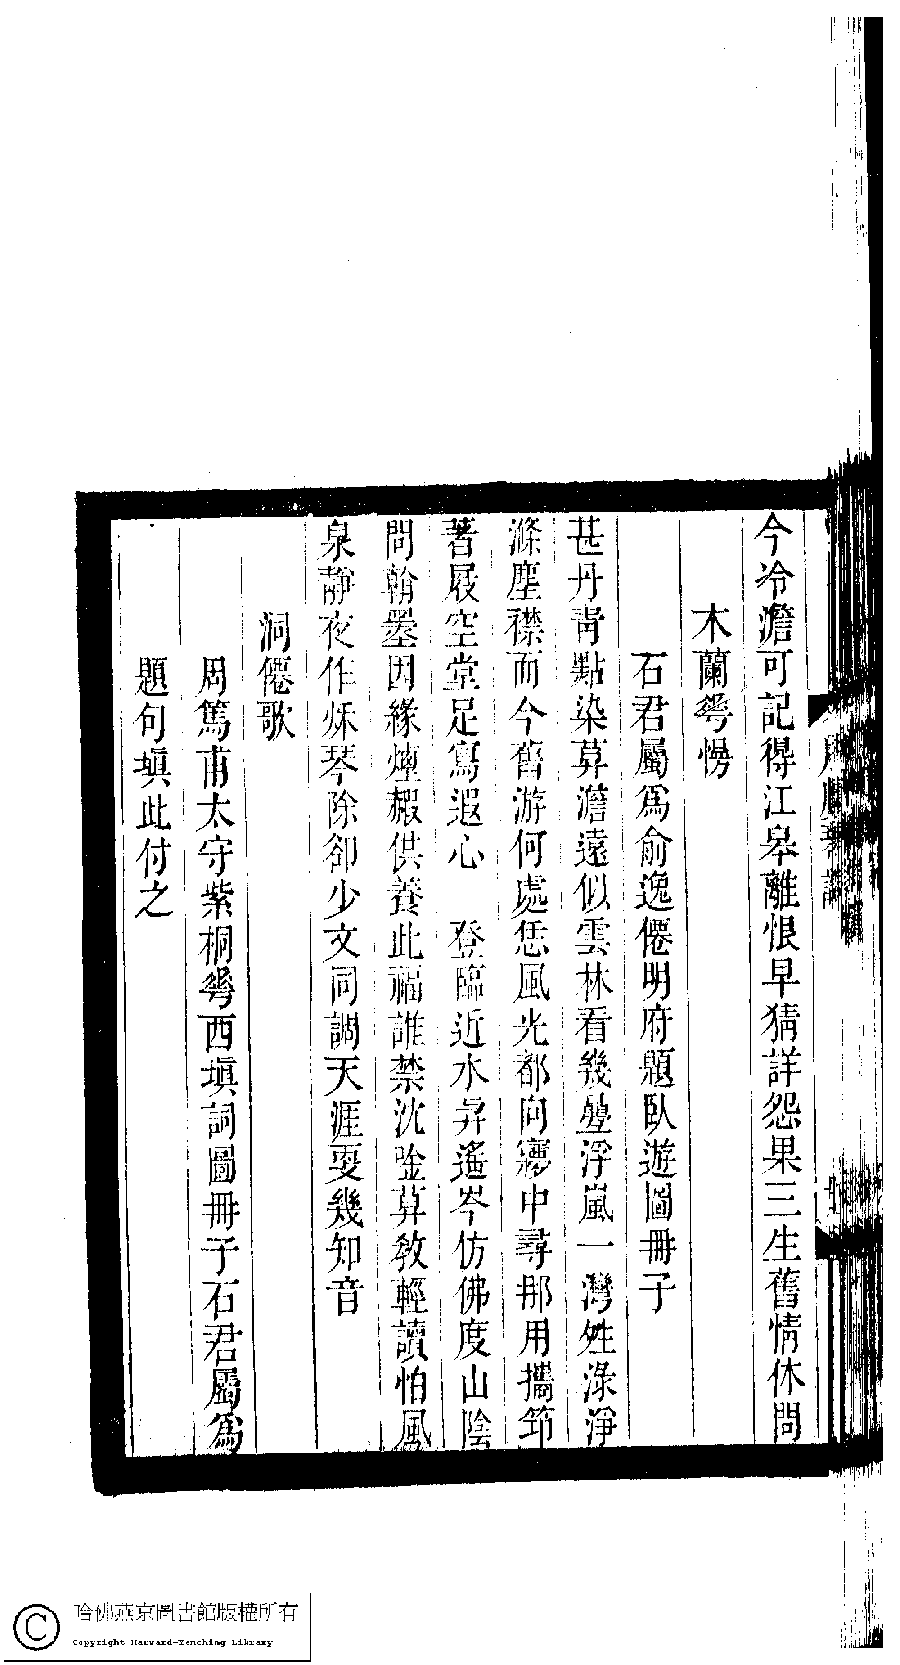 今冷澹可記得江皋離恨早猜詳怨果三生舊情休問
木蘭𠌶慢
石君屬為俞逸僊明府題臥遊圖冊子
甚丹青點染算澹遠似雲林看幾疊浮嵐一灣娃淥淨
滌塵襟而今舊游何處恁風光都向㝱中尋那用攜筇
著屐空堂足寫遐心　登臨近水昇遙岑仿佛度山陰
問翰墨因緣煙椵供養此福誰禁沈唫算教輕讀怕風
泉靜夜作烁琴除卻少文同調天涯耎幾知音
洞僊歌
周篤甫太守紫桐𠌶西塡詞圖冊子石君屬為
題句塡此付之
哈佛燕京圖書館版權所有
Copyright Harvard-Yenching Library